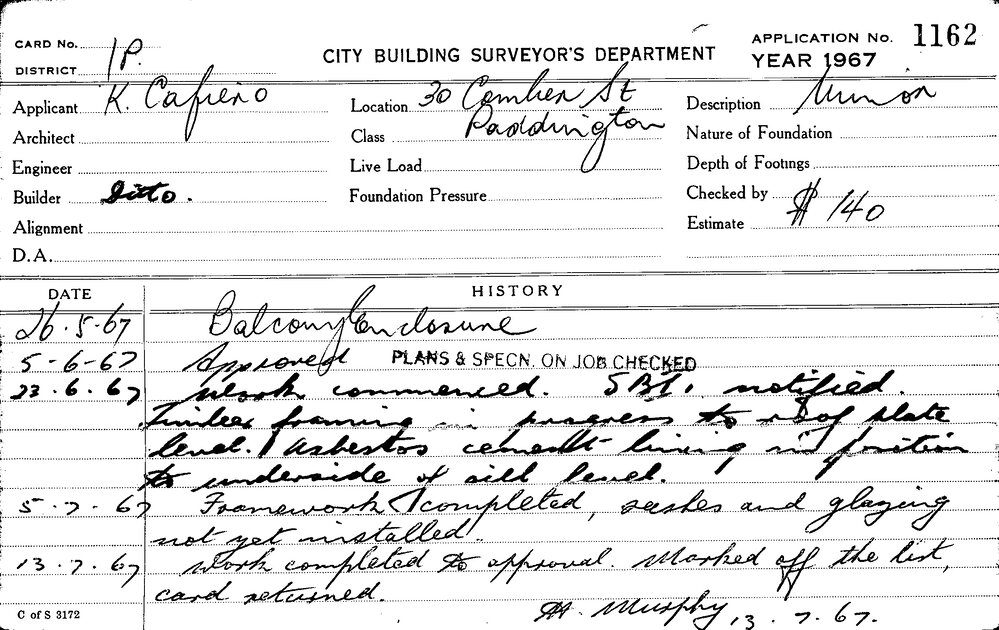 CARD No.
DISTRICT 1P.
CITY BUILDING SURVEYOR'S DEPARTMENT
APPLICATION No. 1162
YEAR 1967
Applicant K. Cafiero
Location 30 Comber St
Paddington
Description Minor
Architect
Class
Nature of Foundation
Engineer
Live Load
Depth of Footings
Builder Ditto.
Foundation Pressure
Checked by
Alignment
Estimate $ 140
D.A.
DATE
HISTORY
26.5.67 Balcony Enclosure
5-6-67 Approved PLANS & SPECN. ON JOB CHECKED
23.6.67 Work commenced. SBI. notified.
Timber framing in progress to roof plate
level. Asbestos cement lining in position
to underside of sill level.
5.7.67 Framework completed, sashes and glazing
not yet installed.
13.7.67 Work completed to approval. Marked off the list,
card returned.
Murphy 13.7.67.
C of S 3172